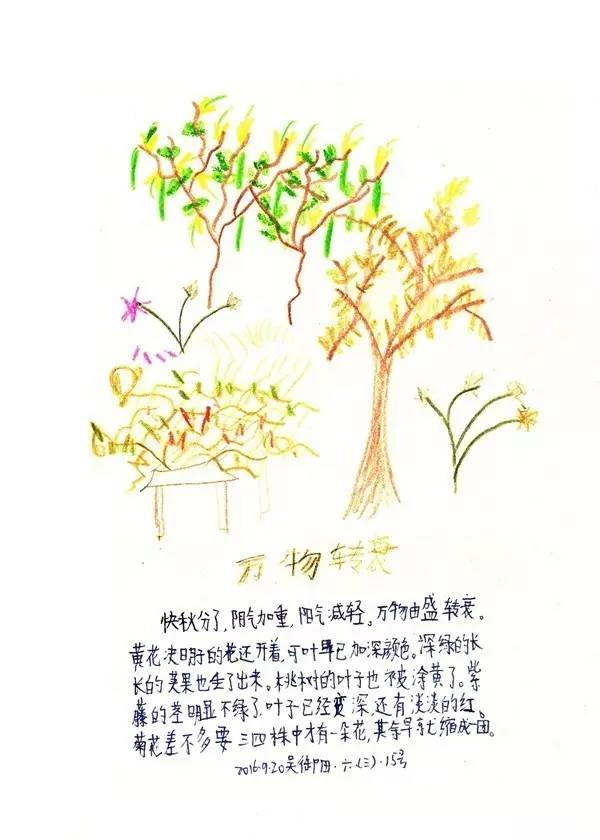 万物转衰
快秋分了，阴气加重，阳气减轻。万物由盛转衰。
黄花决明子的花还开着，可叶早已加深颜色。深绿的长
长的荚果也生了出来。桃树的叶子也被涂黄了。紫
藤的茎明显不绿了，叶子已经变深，还有淡淡的红。
菊花差不多要三四株中才有一朵花，其余早就缩成一团。
2016.9.20吴御阳·六(三)·15号